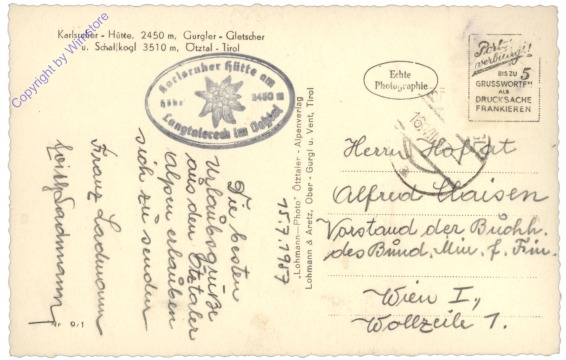 Karlsruher - Hütte, 2450 m, Gurgler - Gletscher
u. Schalfkogl 3510 m, Ötztal - Tirol
Copyright by Winstore
Karlsruher Hütte am
Höhe 2450 m
Langtalereck im Oetztal
Echte
Photographie
Porto-
verbilligt!
BIS ZU 5
GRUSSWORTEN
ALS
DRUCKSACHE
FRANKIEREN
15.7.1957
Die besten
Urlaubsgrüße
aus den Ötztaler
alpen erlauben
sich zu senden
Franz Lachmann
Lachmann
„Lohmann—Photo" Ötztaler - Alpenverlag
Lohmann & Aretz, Ober - Gurgl u. Vent, Tirol
Herrn Hofrat
Alfred Claisen
Vorstand der Buchh.
des Bund. Min. f. Fin.
Wien I.,
Wollzeile 1.
Nr 9/1